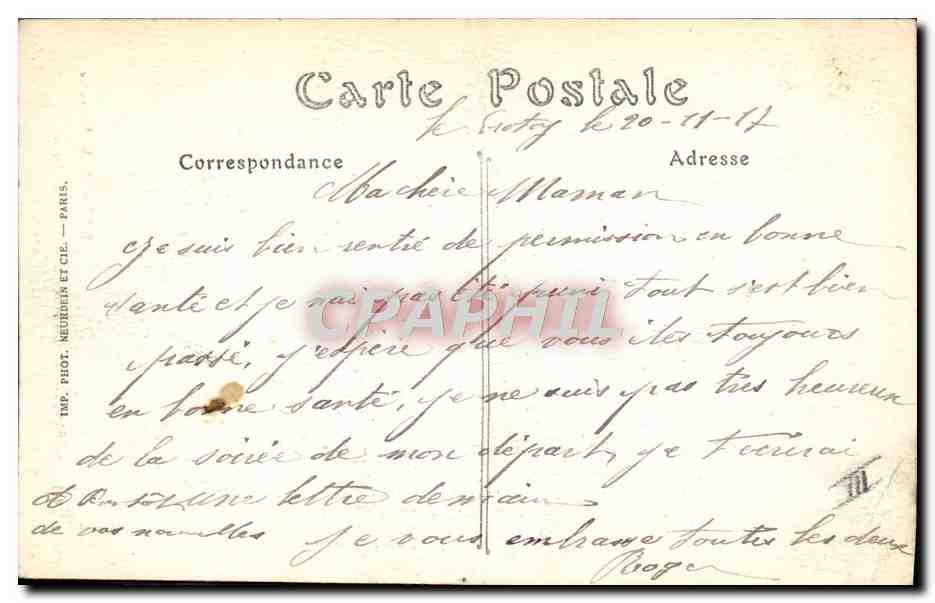 Carte Postale
le Crotoy le 20-11-17
Correspondance
Adresse
Ma chère Maman
Je suis bien rentré de permission en bonne
santé et je n'ai pas été puni tout s'est bien
passé, j'espère que vous êtes toujours
en bonne santé, je ne suis pas très heureux
de la soirée de mon départ, je t'écrirai
une lettre demain
de vos nouvelles
je vous embrasse toutes les deux
Roger
III
IMP. PHOT. NEURDEIN ET CIE. — PARIS.
CPAPHIL